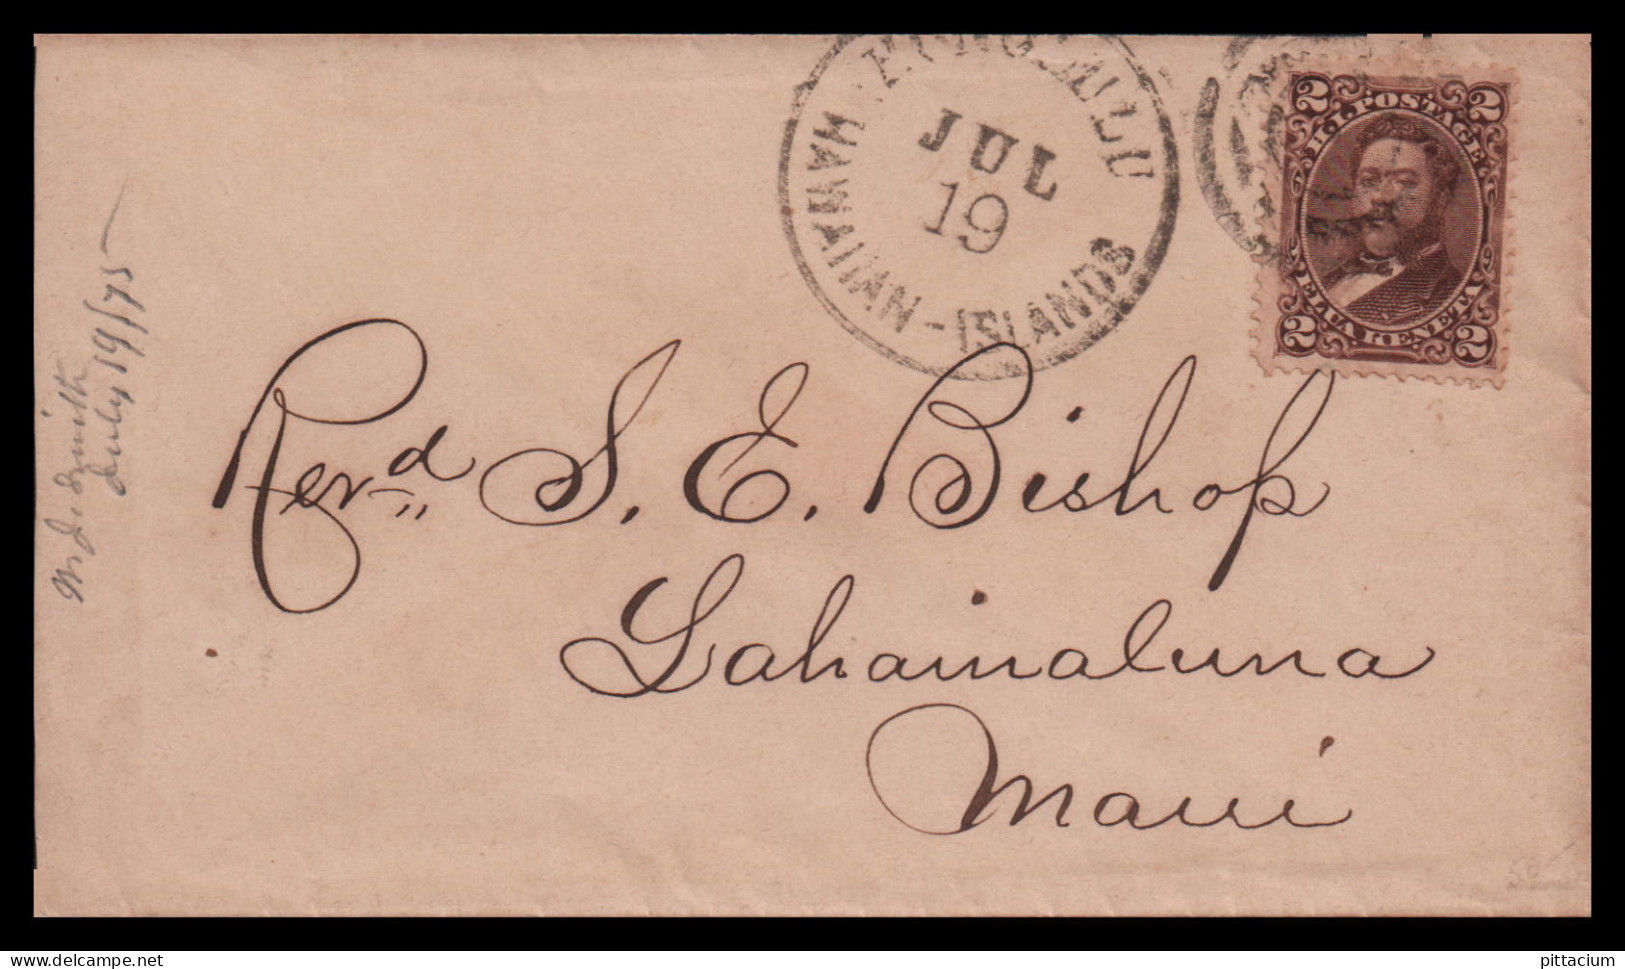 HONOLULU
JUL
19
HAWAIIAN - ISLANDS
2 H.I. POSTAGE 2
2 ELUA KENETA 2
Revd. S. E. Bishop
Lahainaluna
Maui
Smith
July 19/75
www.delcampe.net
pittacium